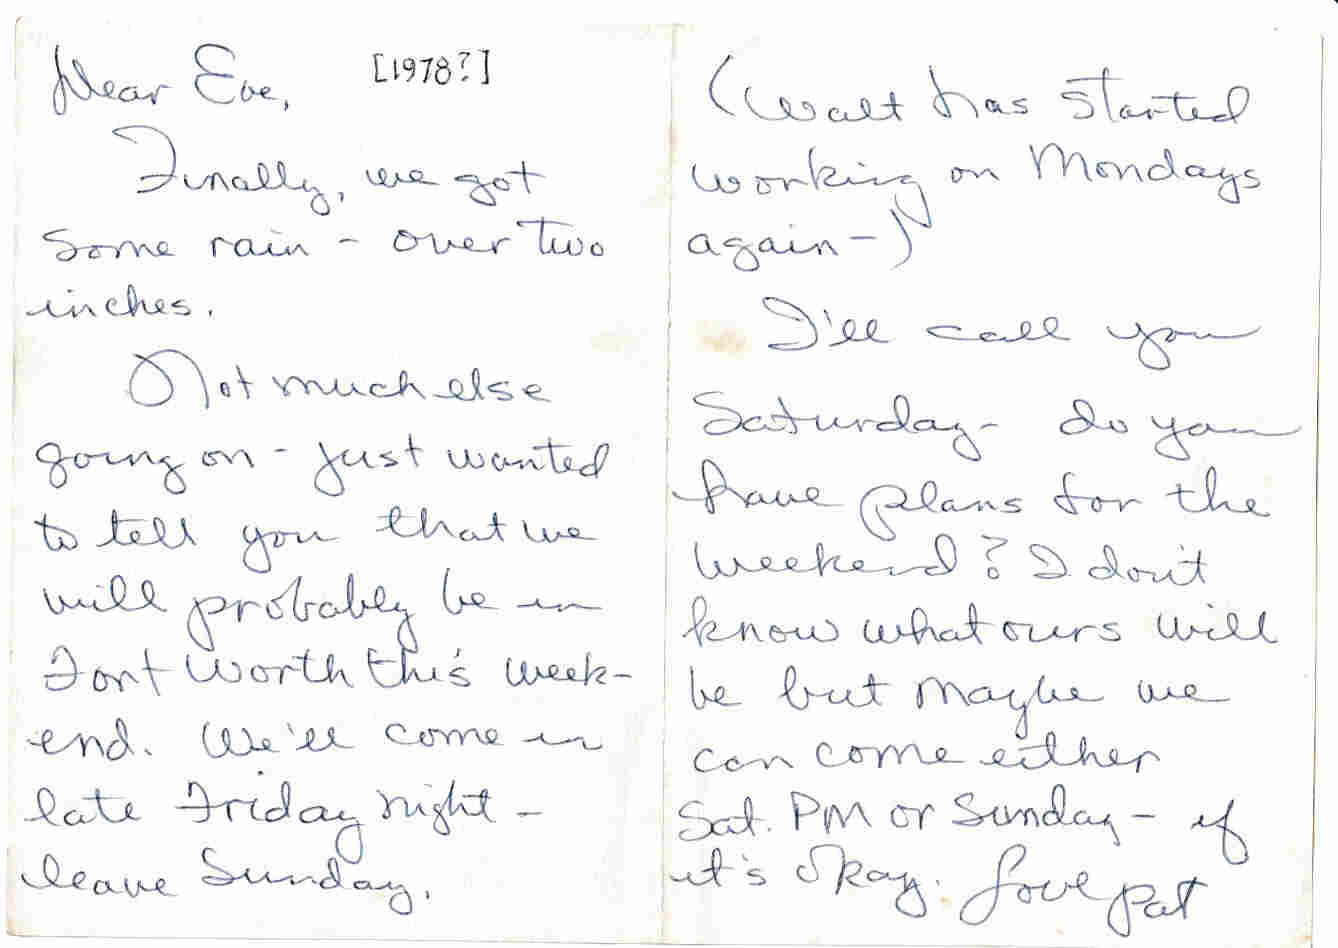 Dear Eve, [1978?]
Finally, we got
some rain - over two
inches.
Not much else
going on - just wanted
to tell you that we
will probably be in
Fort Worth this week-
end. We'll come in
late Friday night -
leave Sunday.
(Walt has started
working on Mondays
again-)
I'll call you
Saturday - do you
have plans for the
weekend? I don't
know what ours will
be but maybe we
can come either
Sat. PM or Sunday - if
it's okay. Love Pat